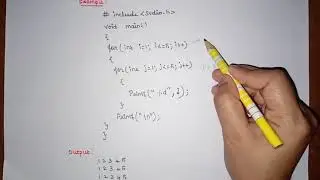 Example:
# include <stdio.h>
void main()
{
for(int i=1; i<=5; i++)
{
for(int j=1; j<=5; j++)
{
Printf("%d", j);
}
Printf("\n");
}
}
Output:
1 2 3 4 5
1 2 3 4 5
1 2 3 4 5